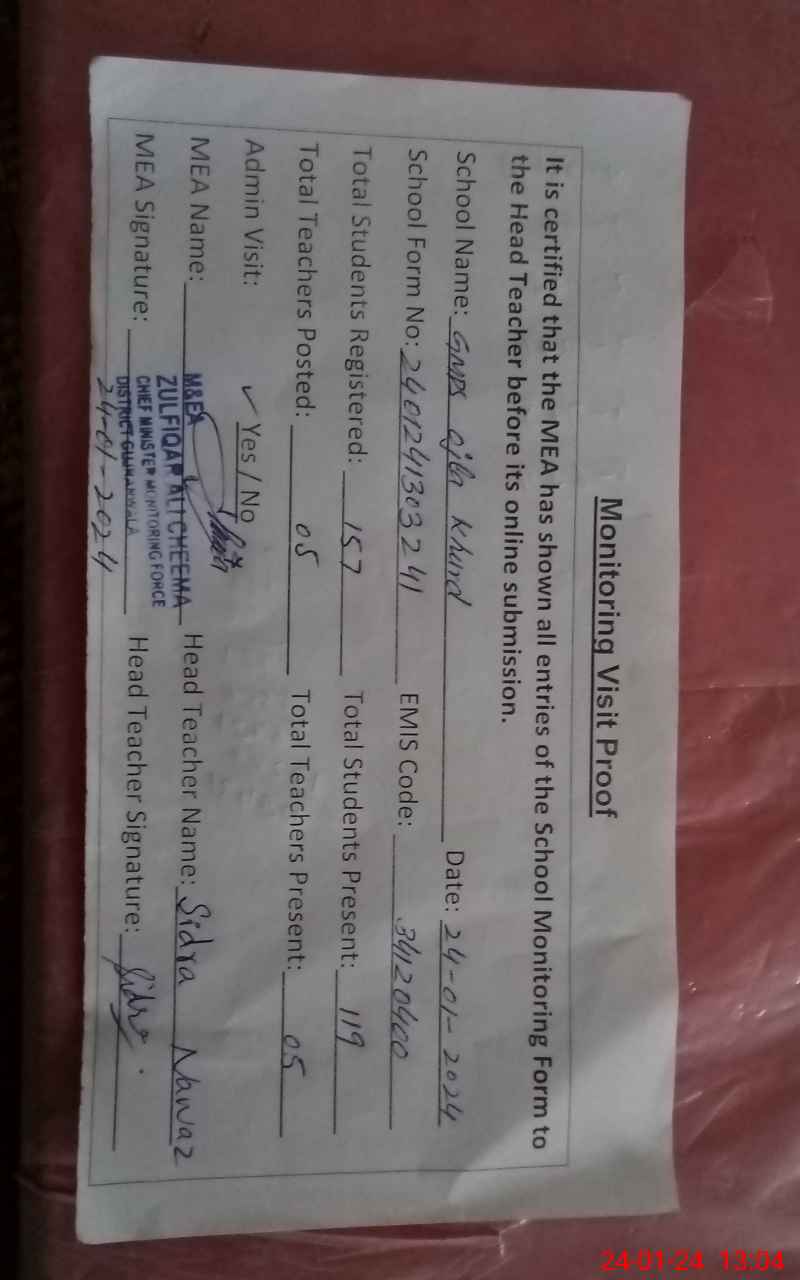 Monitoring Visit Proof
It is certified that the MEA has shown all entries of the School Monitoring Form to
the Head Teacher before its online submission.
School Name: GMPS ojla Khurd Date: 24-01-2024
School Form No: 2401241303241 EMIS Code: 34120400
Total Students Registered: 157 Total Students Present: 119
Total Teachers Posted: 05 Total Teachers Present: 05
Admin Visit: ✓ Yes / No
MEA Name: M&EA ZULFIQAR ALI CHEEMA Head Teacher Name: Sidra Nawaz
CHIEF MINISTER MONITORING FORCE
MEA Signature: DISTRICT GUJRANWALA Head Teacher Signature: Sidra
24-01-2024
24-01-24 13:04